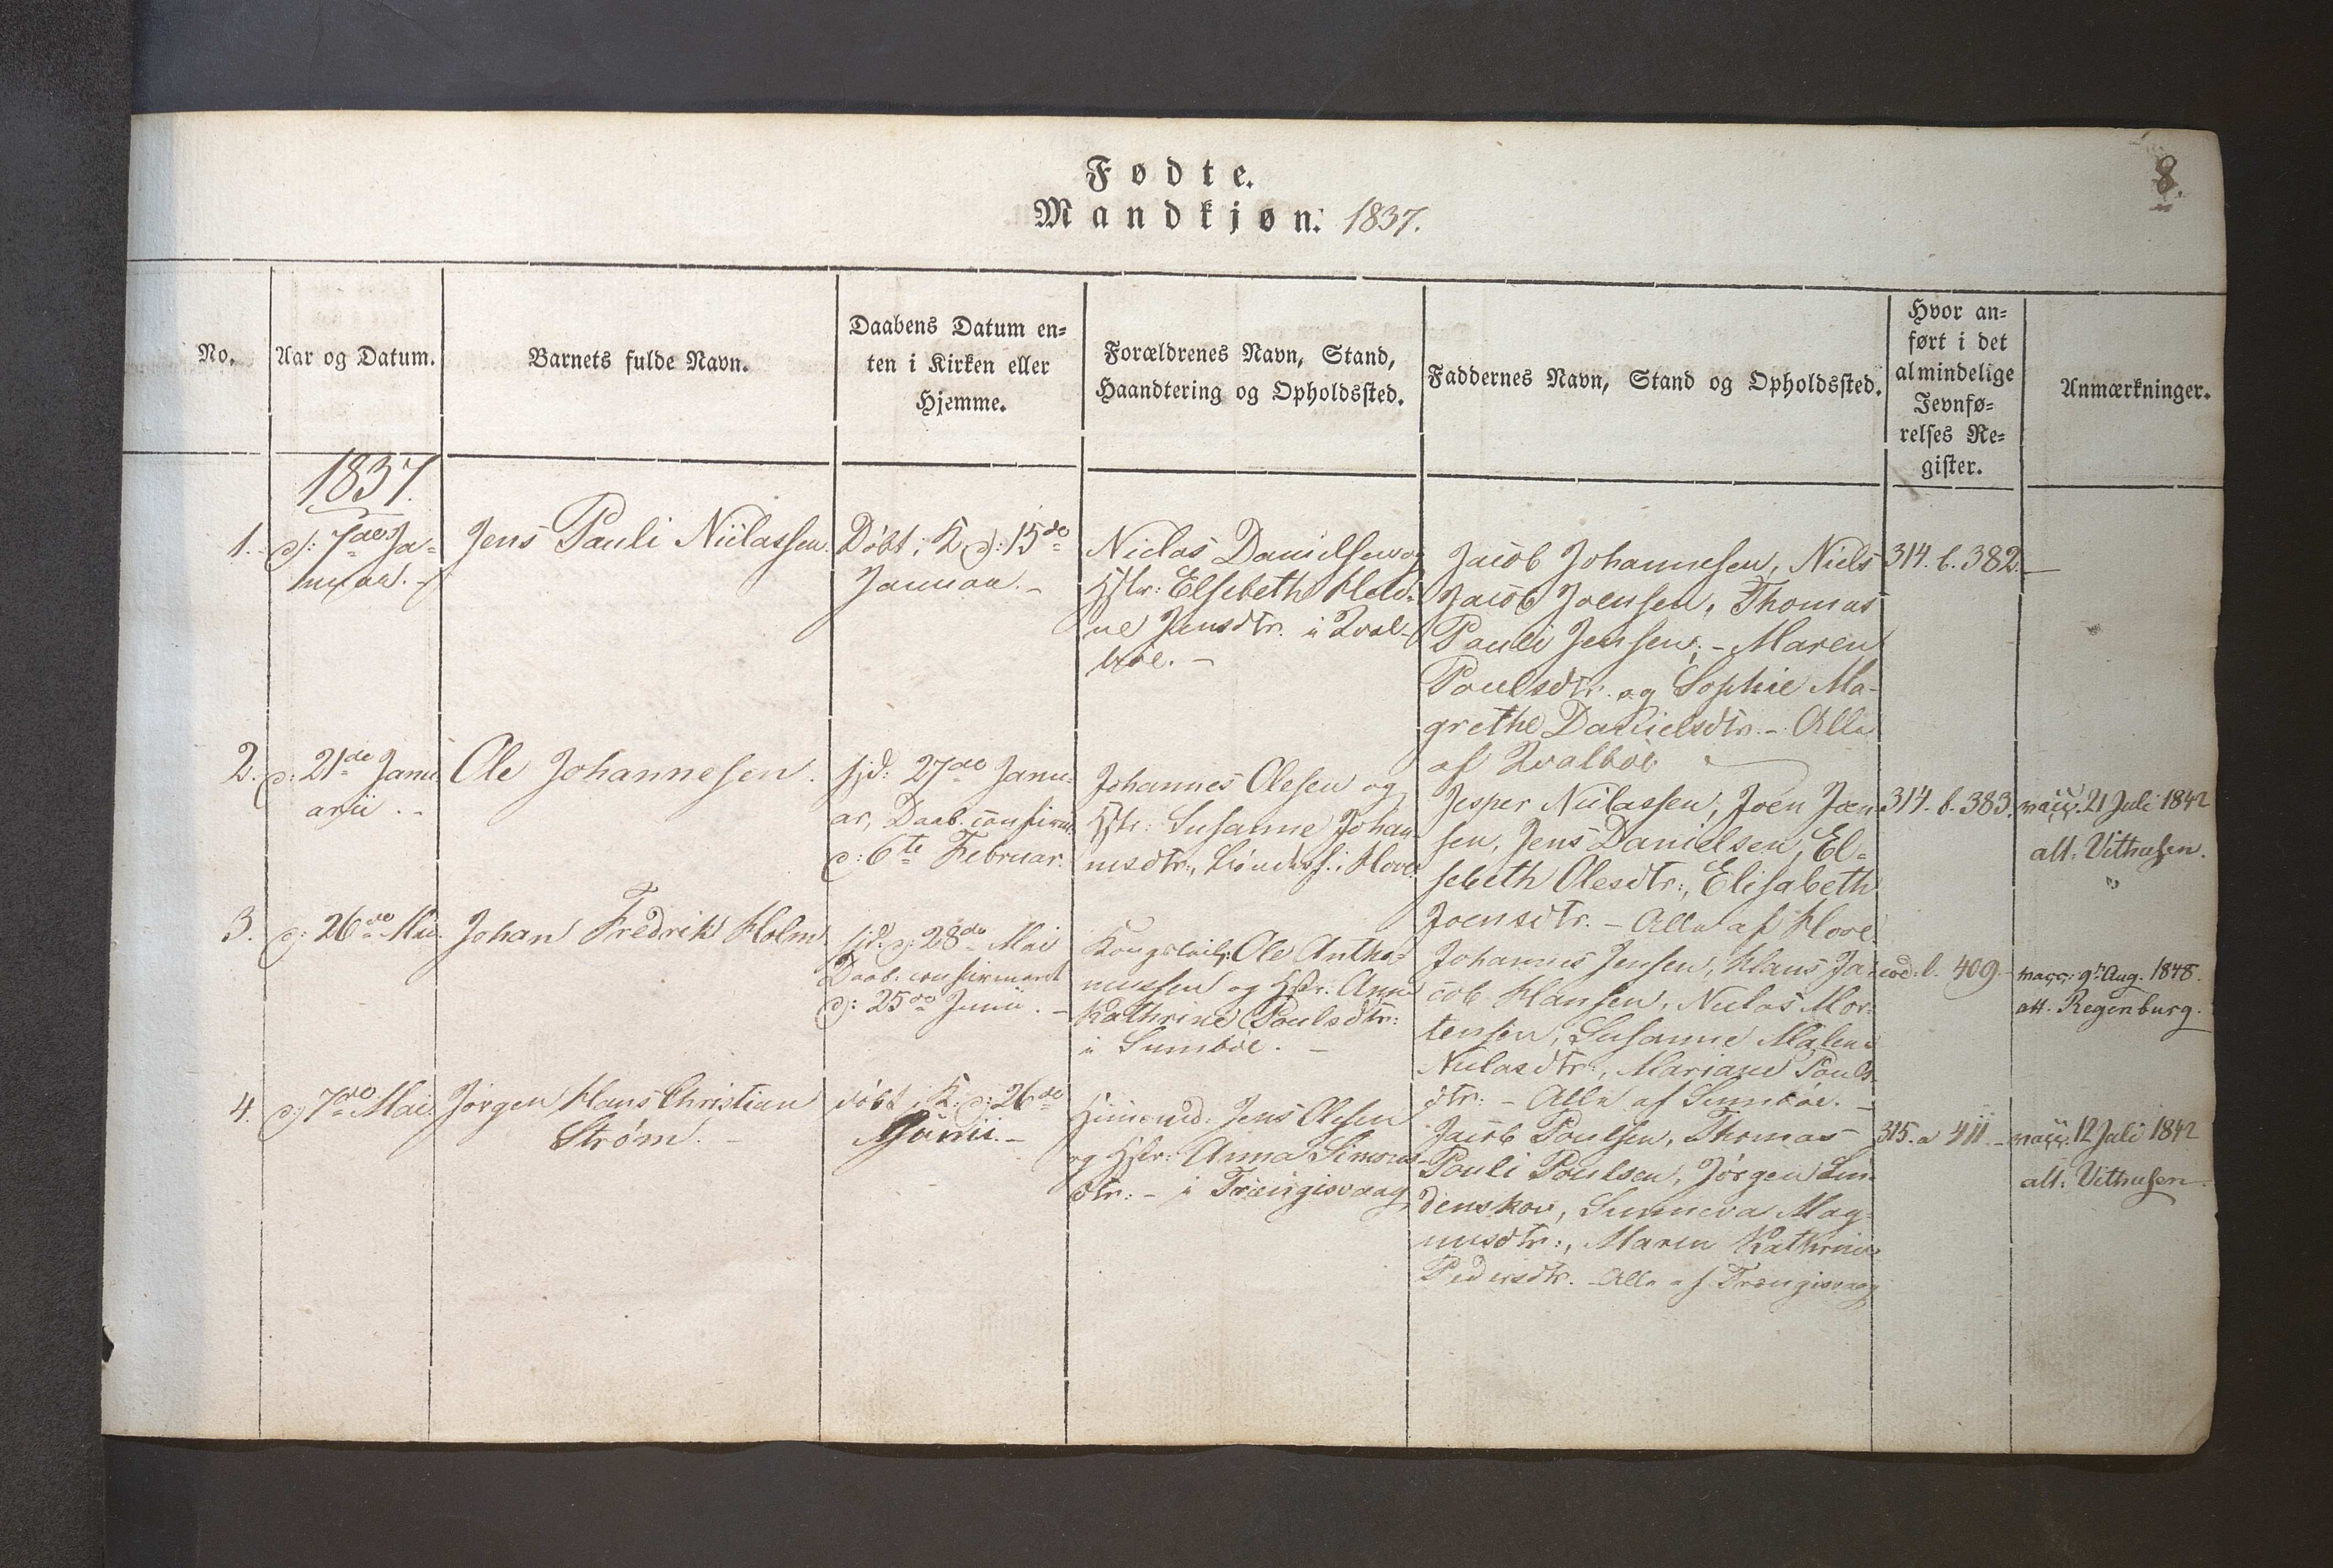 8.
Fødte.
Mandkjøn. 1837.
No.
Aar og Datum.
Barnets fulde Navn.
Daabens Datum en-
ten i Kirken eller
Hjemme.
Forældrenes Navn, Stand,
Haandtering og Opholdssted.
Faddernes Navn, Stand og Opholdssted.
Hvor an-
ført i det
almindelige
Jevnfø-
relses Re-
gister.
Anmærkninger.
1837.
1.
d: 7de Ja-
nuar.
Jens Pauli Niclassen.
Döbt i K. d: 15de
Januar. -
Niclas Danielsen og
Hstr: Elsebeth
Jensdtr. i Qval-
böe. -
Jacob Johannesen, Niels
Jacob Joensen, Thomas
Pauli Jensen, - Maren
Poulsdtr. og Sophie Ma-
grethe Danielsdtr. - Alle
af Qvalböe
314. b. 382. -
2.
d: 21de Janu-
arii. -
Ole Johannesen.
hjd: 27de Janu-
ar, Daab. confirm.
d: 6te Februar.
Johannes Olesen og
Hstr: Susanne Johan-
nesdtr., i Hove.
Jesper Niclassen, Joen Joen-
sen, Jens Danielsen, El-
sebeth Olesdtr:, Elisabeth
Joensdtr. - Alle af Hove.
314. b. 383.
vacc. 21 Juli 1842
att. Vithusen.
3.
d: 26de Mai.
Johan Fredrik Holm
hjd: d: 28de Mai
Daab. confirmeret
d: 25de Junii. -
Ole Antho-
niussen og Hstr: Anne
Kathrine Poulsdtr:
i Sumböe. -
Johannes Jensen, Klaus Ja-
cob Hansen, Niclas Mor-
tensen, Susanne Malene
Niclasdtr:, Mariane Pouls-
dtr: - Alle af Sumböe. -
eod. b. 409. -
vacc. 9de Aug. 1848.
att. Regenburg.
4.
d: 7de Mai.
Jörgen Hans Christian
Ström. -
döbt i K. d: 26de
Junii. -
Jens Olesen
og Hstr: Anna Simons-
dtr: - i Trængisvaag
Jacob Poulsen, Thomas
Pauli Poulsen, Jörgen Lin-
denskov, Sunneva Mag-
nusdtr:, Maren Kathrine
Pedersdtr. - Alle af Trængisvaag
315. a 411. -
vacc. 12 Juli 1842
att. Vithusen.